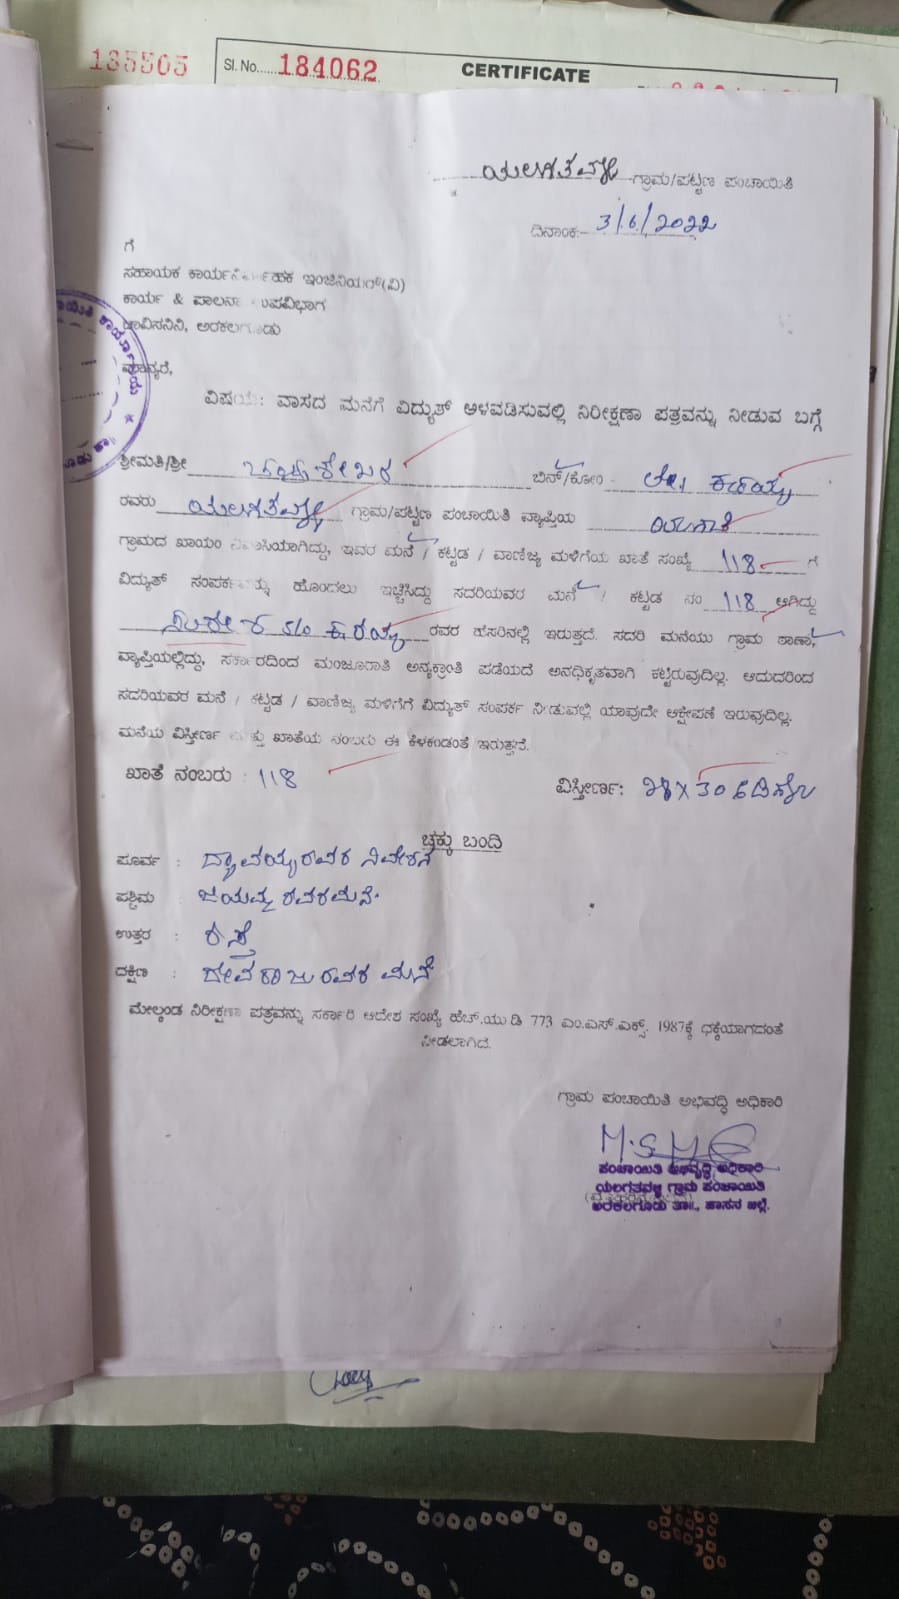 135505
Sl. No......184062
CERTIFICATE
ಯಲಗತವಳ್ಳಿ ಗ್ರಾಮ/ಪಟ್ಟಣ ಪಂಚಾಯಿತಿ
ದಿನಾಂಕ:- 3/6/2022
ಗೆ
ಸಹಾಯಕ ಕಾರ್ಯನಿರ್ವಾಹಕ ಇಂಜಿನಿಯರ್(ವಿ)
ಕಾರ್ಯ & ಪಾಲನಾ ಉಪವಿಭಾಗ
ಚಾವಿಸನಿನಿ, ಅರಕಲಗೂಡು
ಮಾನ್ಯರೆ,
ವಿಷಯ: ವಾಸದ ಮನೆಗೆ ವಿದ್ಯುತ್ ಅಳವಡಿಸುವಲ್ಲಿ ನಿರೀಕ್ಷಣಾ ಪತ್ರವನ್ನು ನೀಡುವ ಬಗ್ಗೆ
ಶ್ರೀಮತಿ/ಶ್ರೀ ಚಂದ್ರಶೇಖರ ಬಿನ್/ಕೋಂ ಲೇ॥
ರವರು ಯಲಗತವಳ್ಳಿ ಗ್ರಾಮ/ಪಟ್ಟಣ ಪಂಚಾಯಿತಿ ವ್ಯಾಪ್ತಿಯ
ಗ್ರಾಮದ ಖಾಯಂ ನಿವಾಸಿಯಾಗಿದ್ದು, ಇವರ ಮನೆ / ಕಟ್ಟಡ / ವಾಣಿಜ್ಯ ಮಳಿಗೆಯ ಖಾತೆ ಸಂಖ್ಯೆ 118 ಗೆ
ವಿದ್ಯುತ್ ಸಂಪರ್ಕವನ್ನು ಹೊಂದಲು ಇಚ್ಛಿಸಿದ್ದು ಸದರಿಯವರ ಮನೆ / ಕಟ್ಟಡ ನಂ 118 ಆಗಿದ್ದು
S/O ರವರ ಹೆಸರಿನಲ್ಲಿ ಇರುತ್ತದೆ. ಸದರಿ ಮನೆಯು ಗ್ರಾಮ ಠಾಣಾ
ವ್ಯಾಪ್ತಿಯಲ್ಲಿದ್ದು, ಸರ್ಕಾರದಿಂದ ಮಂಜೂರಾತಿ ಅನ್ಯಕ್ರಾಂತಿ ಪಡೆಯದೆ ಅನಧಿಕೃತವಾಗಿ ಕಟ್ಟಿರುವುದಿಲ್ಲ. ಆದುದರಿಂದ
ಸದರಿಯವರ ಮನೆ / ಕಟ್ಟಡ / ವಾಣಿಜ್ಯ ಮಳಿಗೆಗೆ ವಿದ್ಯುತ್ ಸಂಪರ್ಕ ನೀಡುವಲ್ಲಿ ಯಾವುದೇ ಆಕ್ಷೇಪಣೆ ಇರುವುದಿಲ್ಲ.
ಮನೆಯ ವಿಸ್ತೀರ್ಣ ಮತ್ತು ಖಾತೆಯ ನಂಬರು ಈ ಕೆಳಕಂಡಂತೆ ಇರುತ್ತದೆ.
ಖಾತೆ ನಂಬರು : 118 ವಿಸ್ತೀರ್ಣ: 28 X 30
ಚಕ್ಕು ಬಂದಿ
ಪೂರ್ವ : ದ್ಯಾವಯ್ಯರವರ ನಿವೇಶನ
ಪಶ್ಚಿಮ : ಜಯಮ್ಮ ರವರ ಮನೆ
ಉತ್ತರ : ರಸ್ತೆ
ದಕ್ಷಿಣ : ದೇವರಾಜು ರವರ ಮನೆ
ಮೇಲ್ಕಂಡ ನಿರೀಕ್ಷಣಾ ಪತ್ರವನ್ನು ಸರ್ಕಾರಿ ಆದೇಶ ಸಂಖ್ಯೆ ಹೆಚ್.ಯು.ಡಿ 773 ಎಂ.ಎಸ್.ಎಕ್ಸ್. 1987ಕ್ಕೆ ಧಕ್ಕೆಯಾಗದಂತೆ
ನೀಡಲಾಗಿದೆ.
ಗ್ರಾಮ ಪಂಚಾಯಿತಿ ಅಭಿವದ್ಧಿ ಅಧಿಕಾರಿ
ಪಂಚಾಯಿತಿ ಅಭಿವೃದ್ಧಿ ಅಧಿಕಾರಿ
ಯಲಗತವಳ್ಳಿ ಗ್ರಾಮ ಪಂಚಾಯಿತಿ
ಅರಕಲಗೂಡು ತಾ||, ಹಾಸನ ಜಿಲ್ಲೆ.